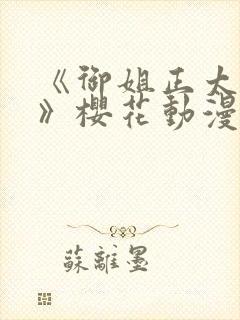 《御姐正太
》櫻花動漫
蘇離墨